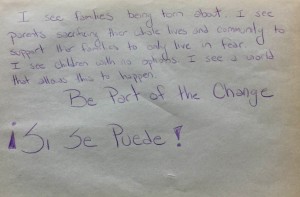 I see families being torn about. I see
parents sacrificing their whole lives and community to
support their families to only live in fear.
I see children with no options. I see a world
that allows this to happen.
Be Part of the Change
¡Si Se Puede!